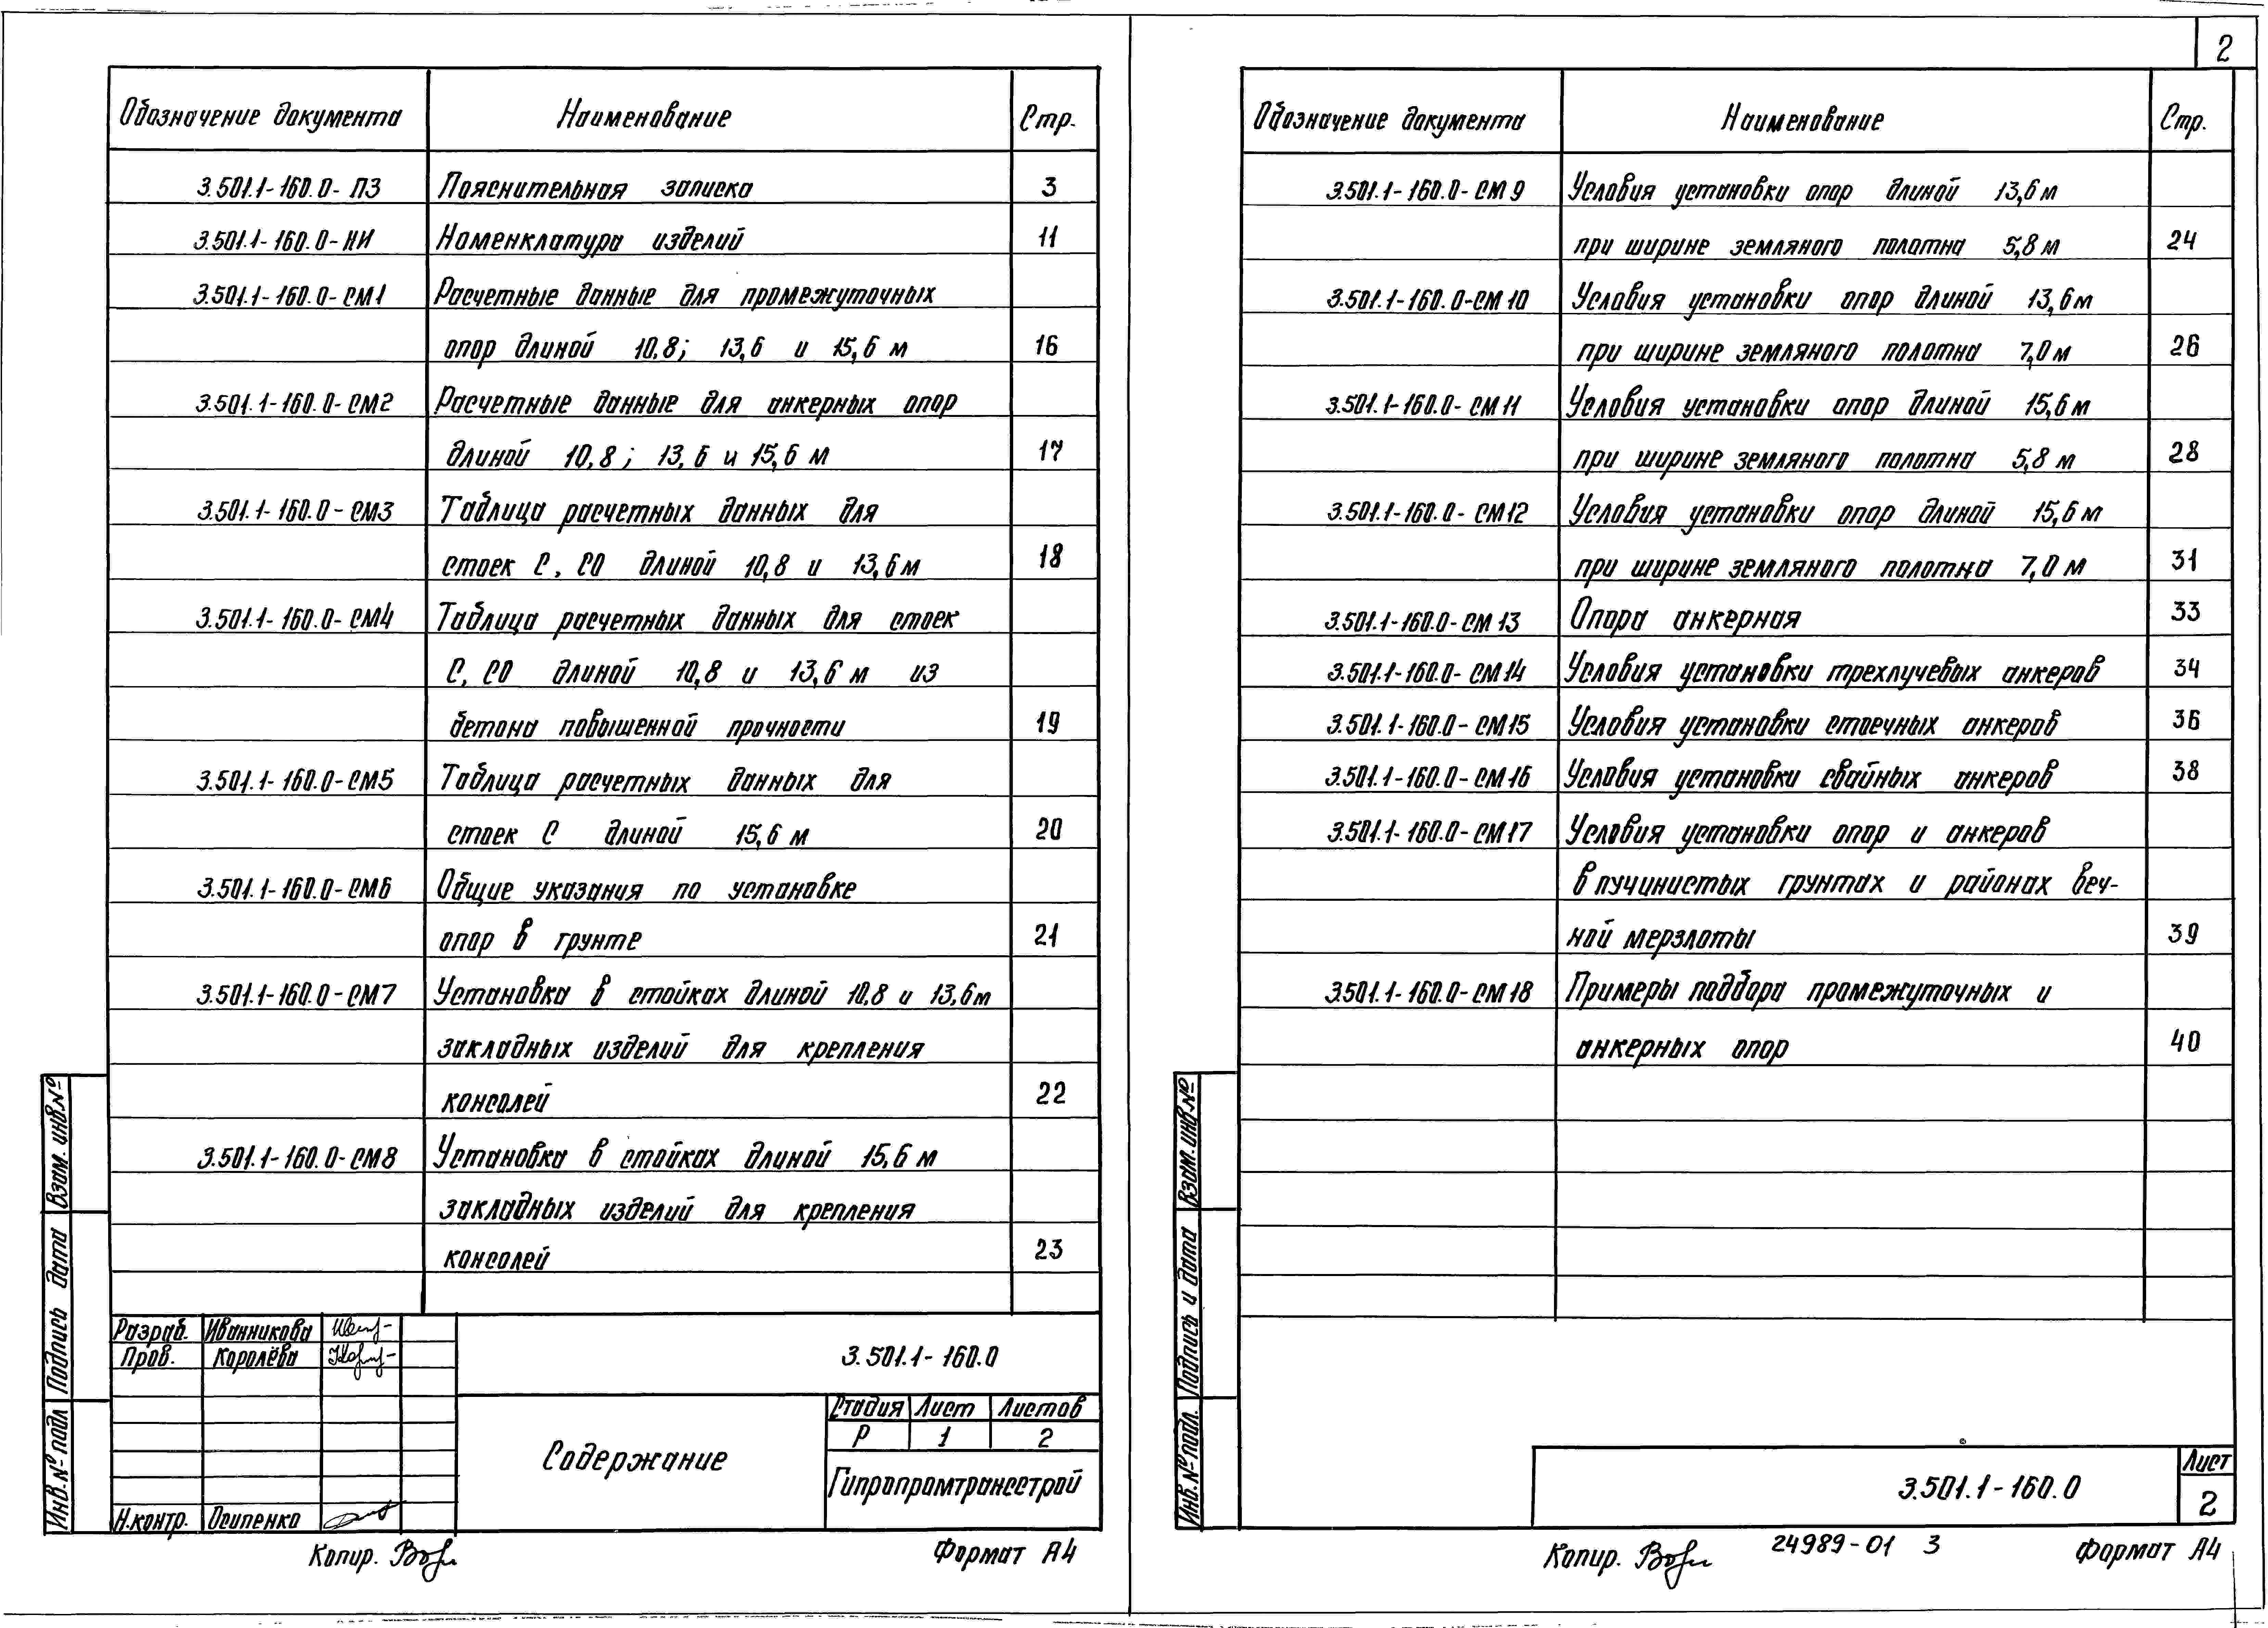 Обозначение документа Наименование Стр.
3.501.1-160.0-ПЗ Пояснительная записка 3
3.501.1-160.0-НИ Номенклатура изделий 11
3.501.1-160.0-СМ1 Расчетные данные для промежуточных
опор длиной 10,8; 13,6 и 15,6 м 16
3.501.1-160.0-СМ2 Расчетные данные для анкерных опор
длиной 10,8; 13,6 и 15,6 м 17
3.501.1-160.0-СМ3 Таблица расчетных данных для
стоек С, СО длиной 10,8 и 13,6 м 18
3.501.1-160.0-СМ4 Таблица расчетных данных для стоек
С, СО длиной 10,8 и 13,6 м из
бетона повышенной прочности 19
3.501.1-160.0-СМ5 Таблица расчетных данных для
стоек С длиной 15,6 м 20
3.501.1-160.0-СМ6 Общие указания по установке
опор в грунте 21
3.501.1-160.0-СМ7 Установка в стойках длиной 10,8 и 13,6 м
закладных изделий для крепления
консолей 22
3.501.1-160.0-СМ8 Установка в стойках длиной 15,6 м
закладных изделий для крепления
консолей 23
Взам. инв.№
Подпись дата
Инв.№ подл
Разраб. Иванникова
Пров. Королёва
Н.контр. Осипенко
3.501.1-160.0
Содержание
Стадия Лист Листов
Р 1 2
Гипропромтрансстрой
Копир.
Формат А4
2
Обозначение документа Наименование Стр.
3.501.1-160.0-СМ9 Условия установки опор длиной 13,6 м
при ширине земляного полотна 5,8 м 24
3.501.1-160.0-СМ10 Условия установки опор длиной 13,6 м
при ширине земляного полотна 7,0 м 26
3.501.1-160.0-СМ11 Условия установки опор длиной 15,6 м
при ширине земляного полотна 5,8 м 28
3.501.1-160.0-СМ12 Условия установки опор длиной 15,6 м
при ширине земляного полотна 7,0 м 31
3.501.1-160.0-СМ13 Опора анкерная 33
3.501.1-160.0-СМ14 Условия установки трехлучевых анкеров 34
3.501.1-160.0-СМ15 Условия установки стоечных анкеров 36
3.501.1-160.0-СМ16 Условия установки свайных анкеров 38
3.501.1-160.0-СМ17 Условия установки опор и анкеров
в пучинистых грунтах и районах веч-
ной мерзлоты 39
3.501.1-160.0-СМ18 Примеры подбора промежуточных и
анкерных опор 40
Взам. инв.№
Подпись и дата
Инв.№ подл.
3.501.1-160.0
Лист
2
Копир.
24989-01 3
Формат А4